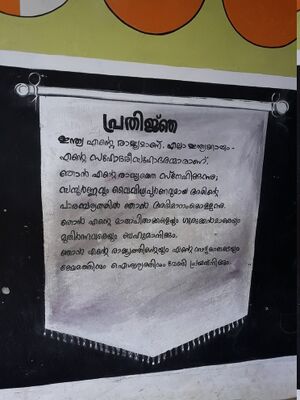 പ്രതിജ്ഞ
ഇന്ത്യ എന്റെ രാജ്യമാണ്. എല്ലാ ഇന്ത്യക്കാരും
എന്റെ സഹോദരീസഹോദരന്മാരാണ്.
ഞാൻ എന്റെ രാജ്യത്തെ സ്നേഹിക്കുന്നു;
സമ്പൂർണ്ണവും വൈവിധ്യപൂർണവുമായ അതിന്റെ
പാരമ്പര്യത്തിൽ ഞാൻ അഭിമാനംകൊള്ളുന്നു.
ഞാൻ എന്റെ മാതാപിതാക്കളെയും ഗുരുക്കന്മാരെയും
മുതിർന്നവരെയും ബഹുമാനിക്കും.
ഞാൻ എന്റെ രാജ്യത്തിന്റെയും എന്റെ നാട്ടുകാരുടെയും
ക്ഷേമത്തിനും ഐശ്വര്യത്തിനും വേണ്ടി പ്രയത്നിക്കും.